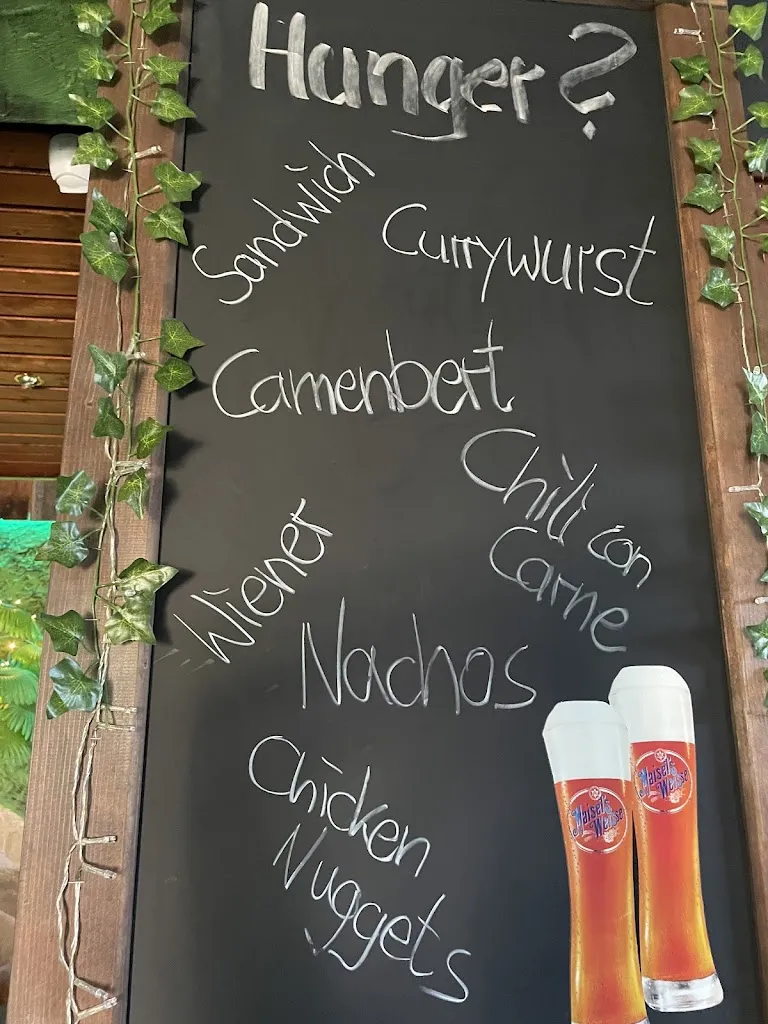 Hunger?
Sandwich
Currywurst
Camenbert
Chili con
Carne
Wiener
Nachos
Chicken
Nuggets
Maisel's
Weisse
Maisel's
Weisse